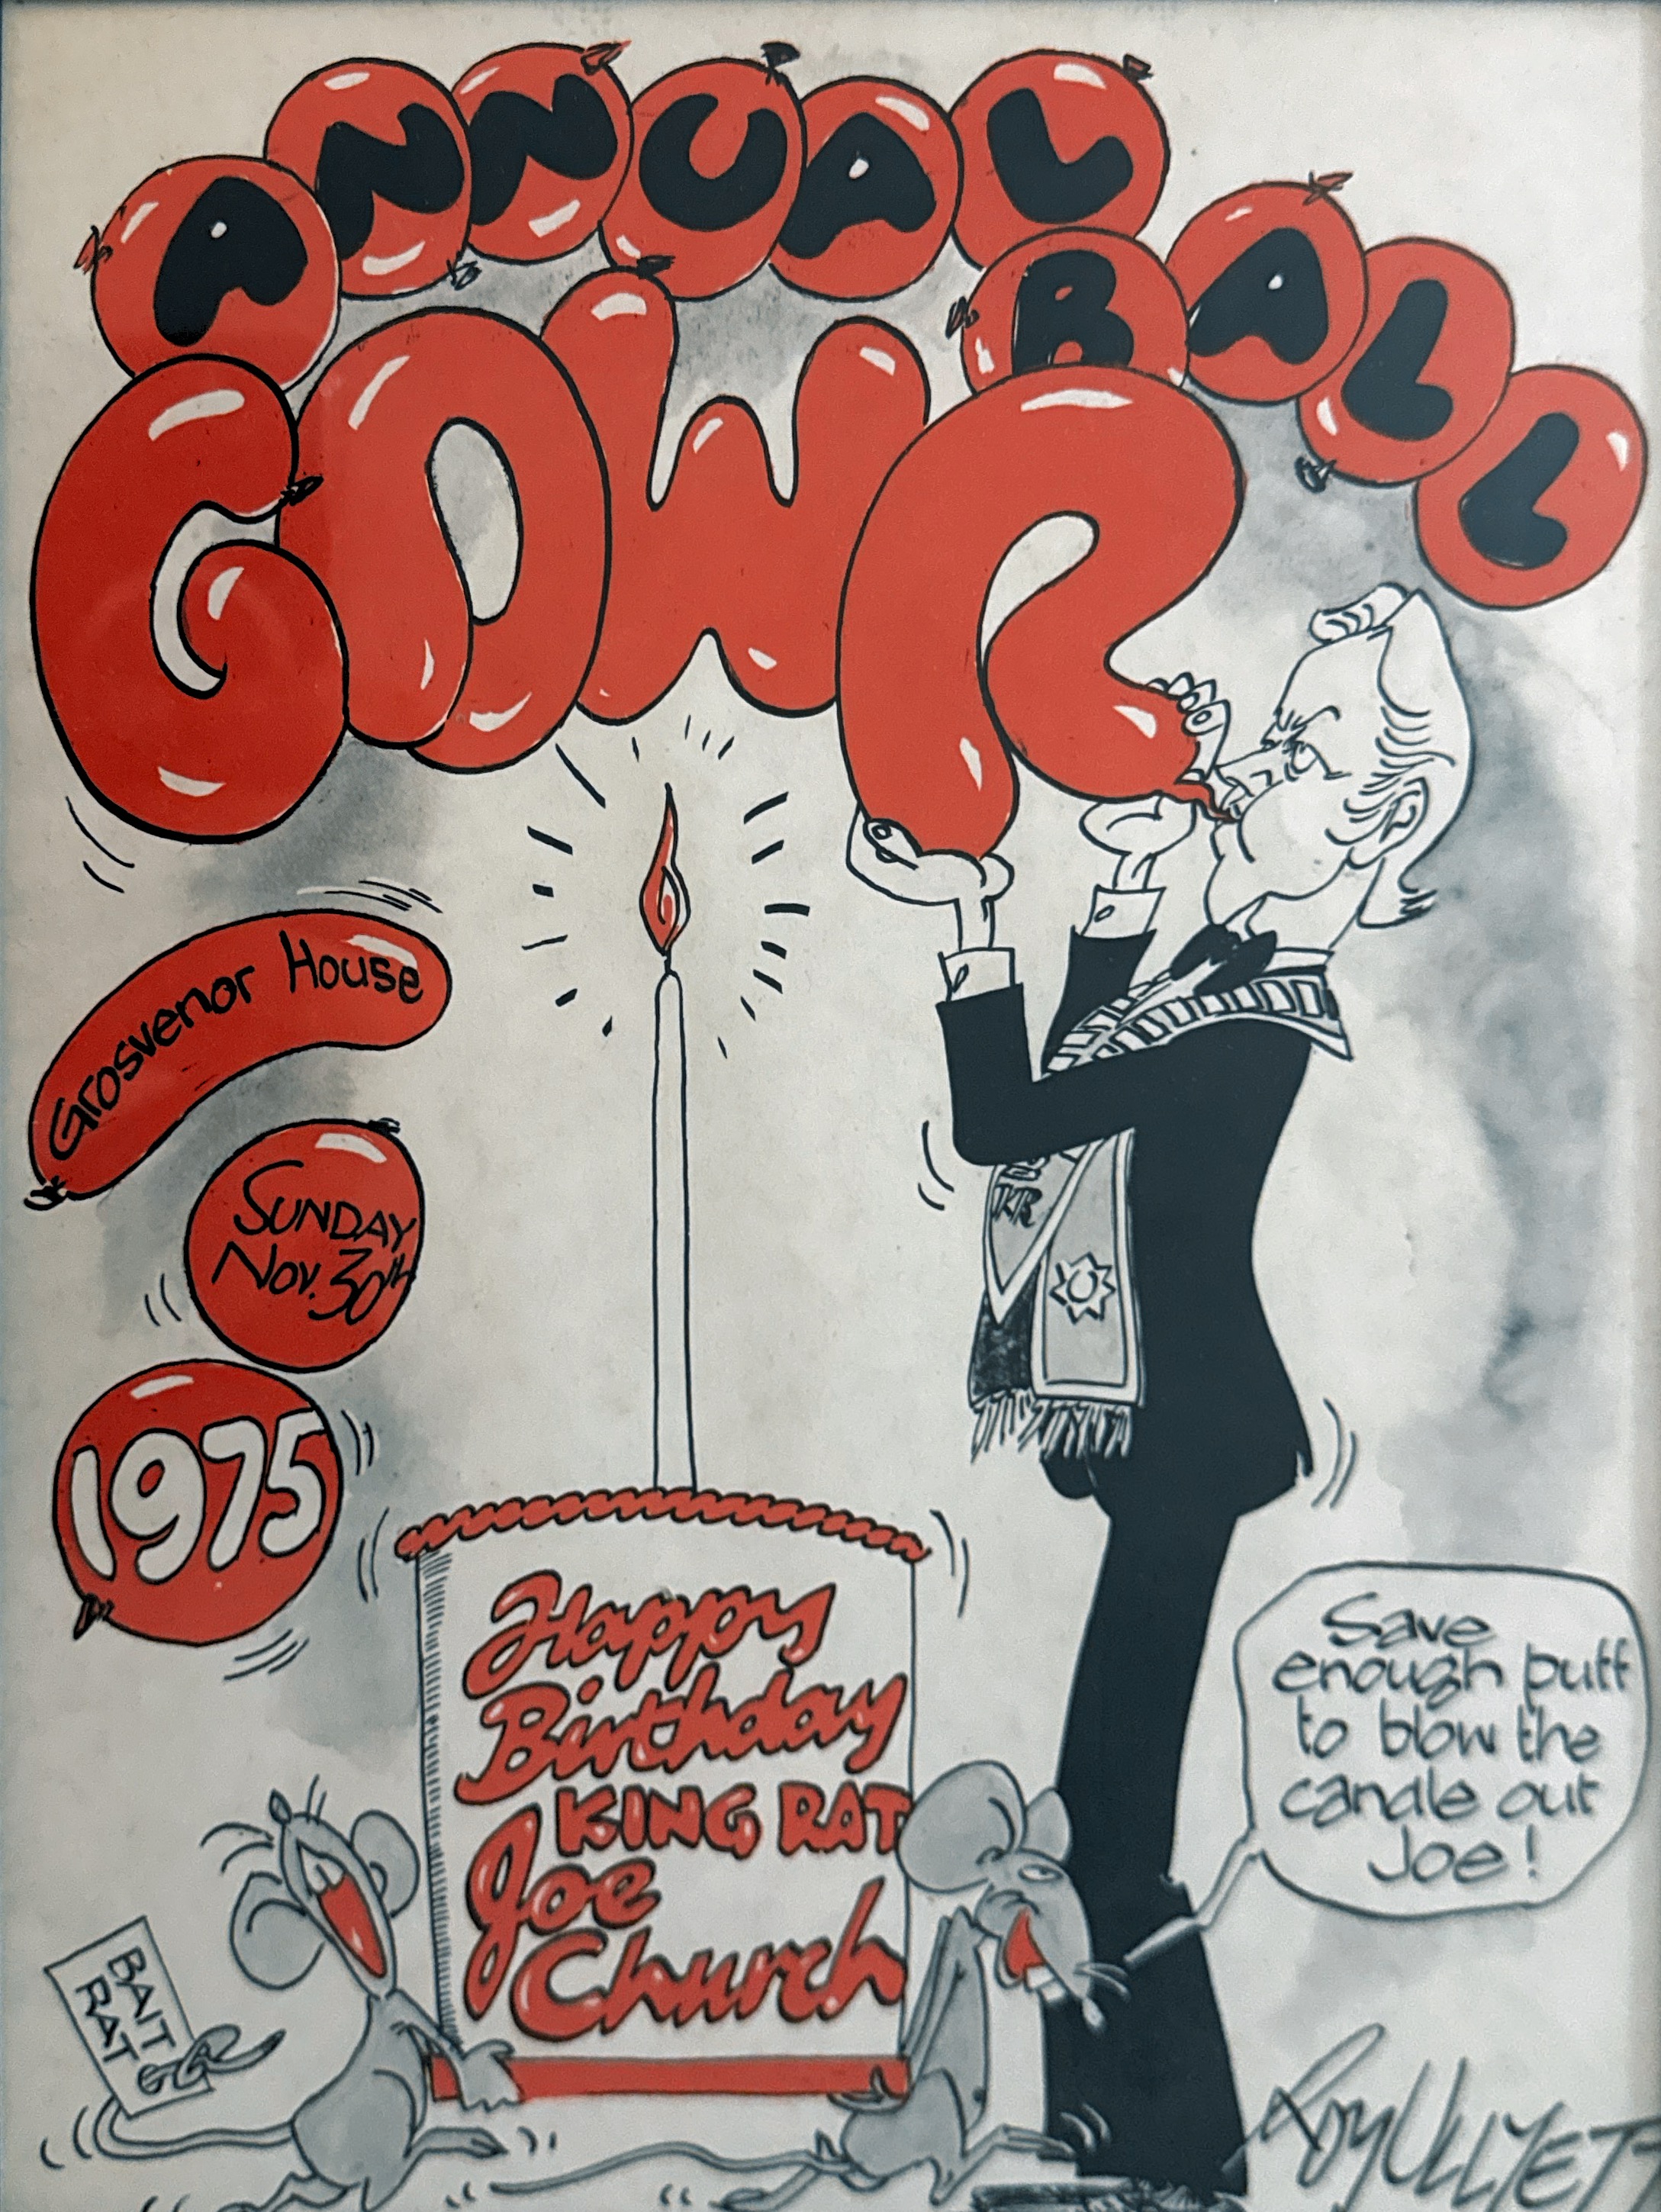 ANNUAL
BALL
GOWR
Grosvenor House
SUNDAY
Nov. 30th
1975
KR
Happy
Birthday
KING RAT
Joe
Church
Save
enough puff
to blow the
candle out
Joe!
BAIT
RAT
Roy ULLYETT